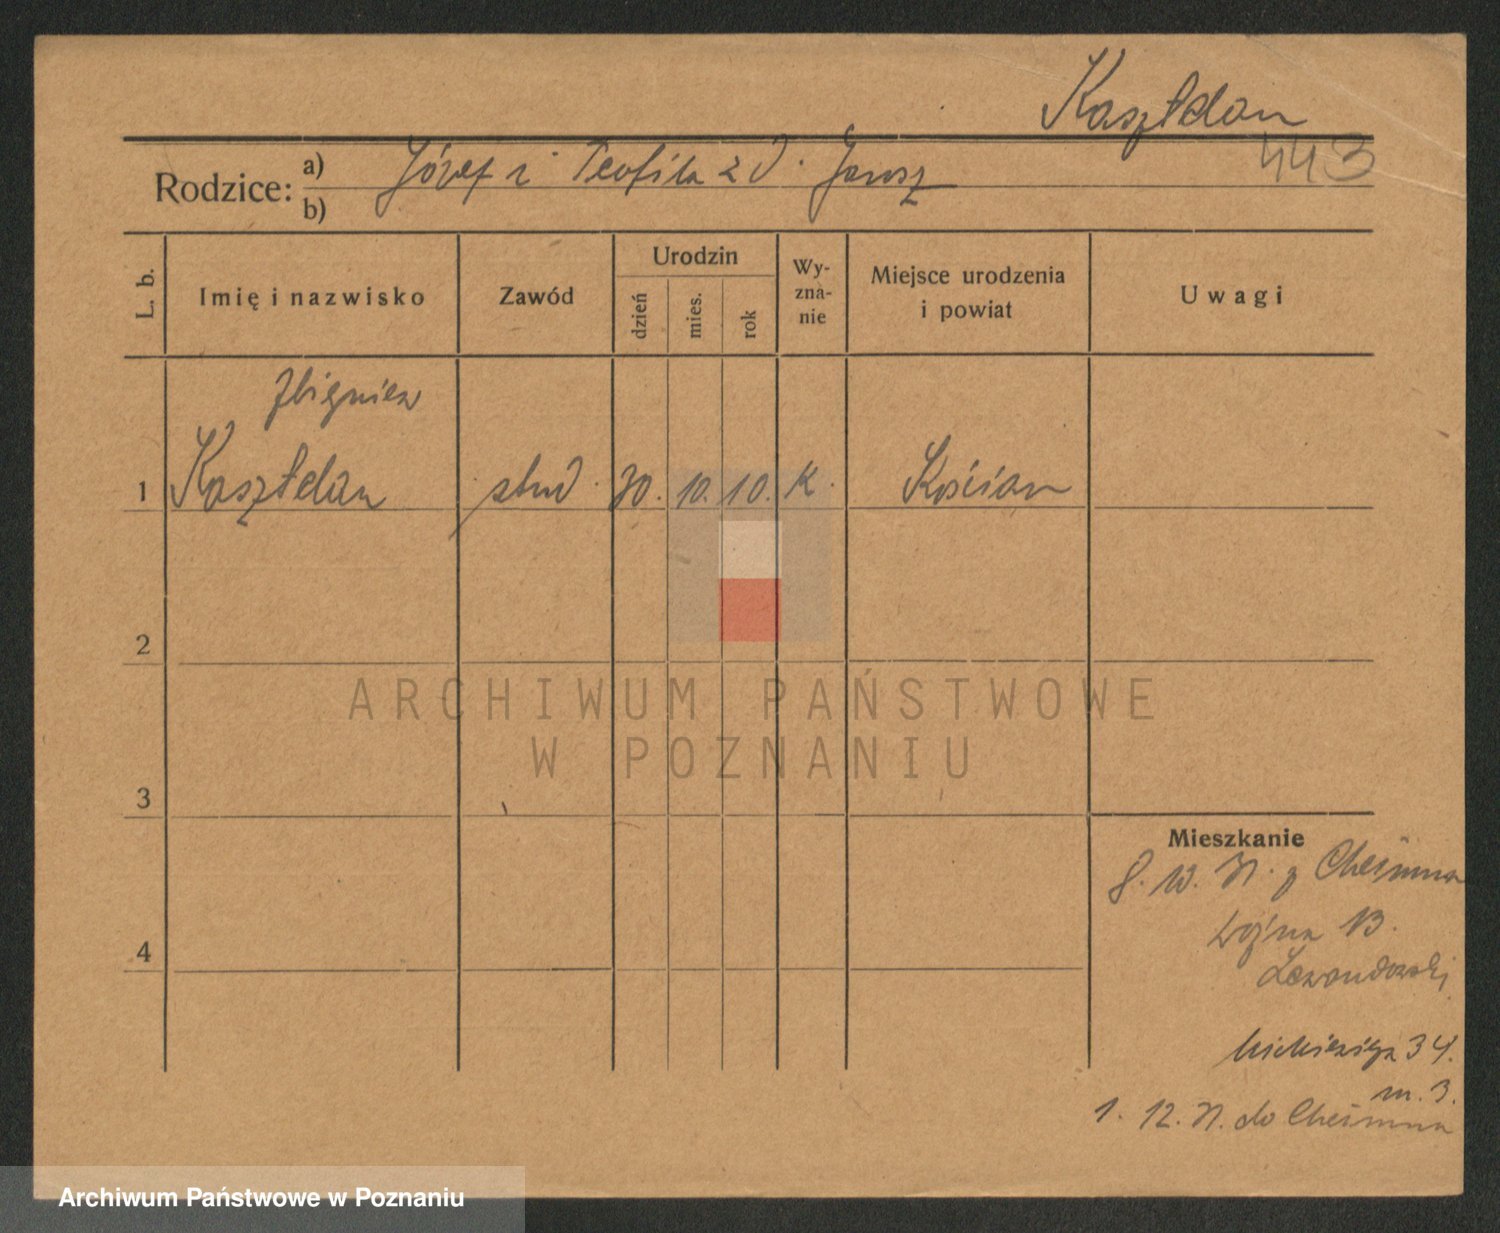 Kasztelan
443
Rodzice: a) Józef i Teofila z d. Jarosz
b)
L. b.
Imię i nazwisko
Zawód
Urodzin
dzień
mies.
rok
Wy-
zna-
nie
Miejsce urodzenia
i powiat
Uwagi
Zbigniew
1 Kasztelan stud. 30. 10. 10. K. Kościan
2
3
4
Mieszkanie
z Chełmna
Lewandowski
34.
m. 3.
1. 12. do Chełmna
ARCHIWUM PAŃSTWOWE
W POZNANIU
Archiwum Państwowe w Poznaniu